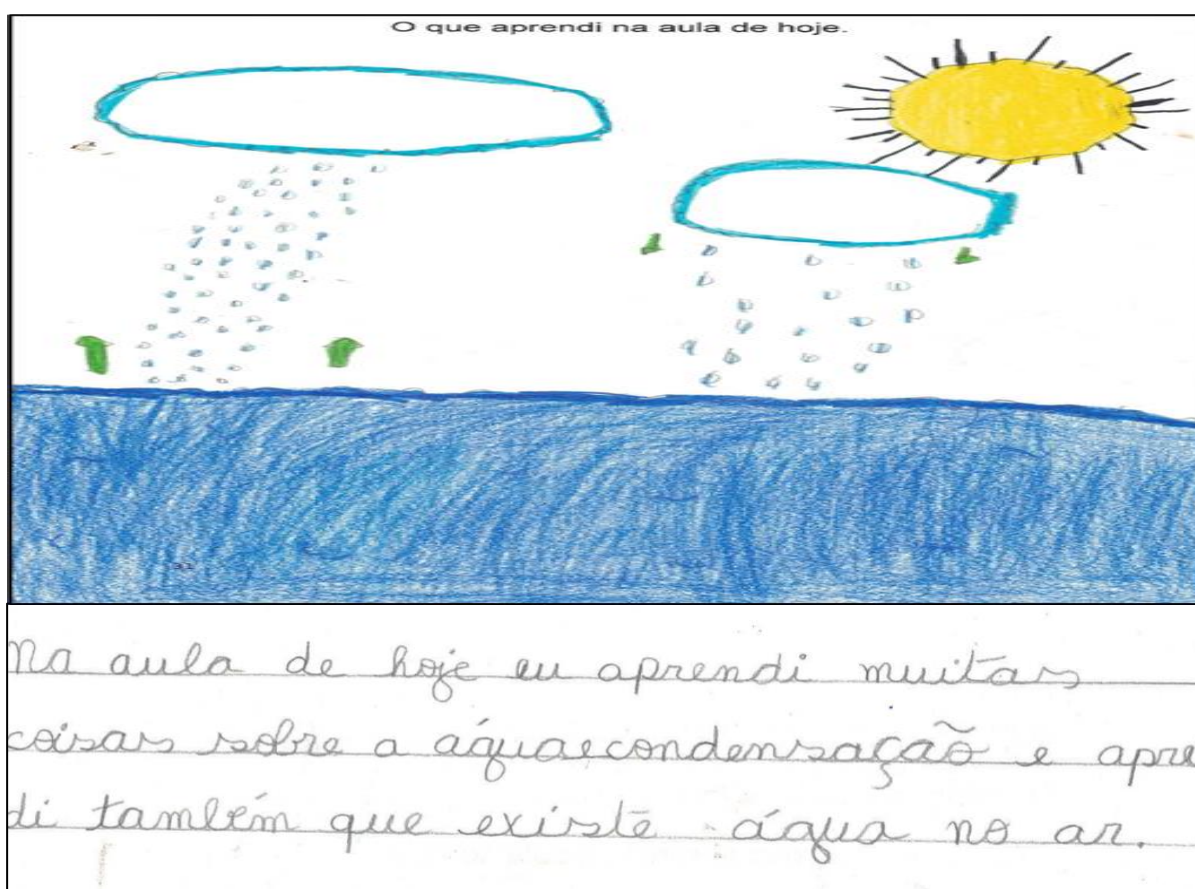 O que aprendi na aula de hoje.
Na aula de hoje eu aprendi muitas
coisas sobre a águaecondensação e apre
di também que existe água no ar.